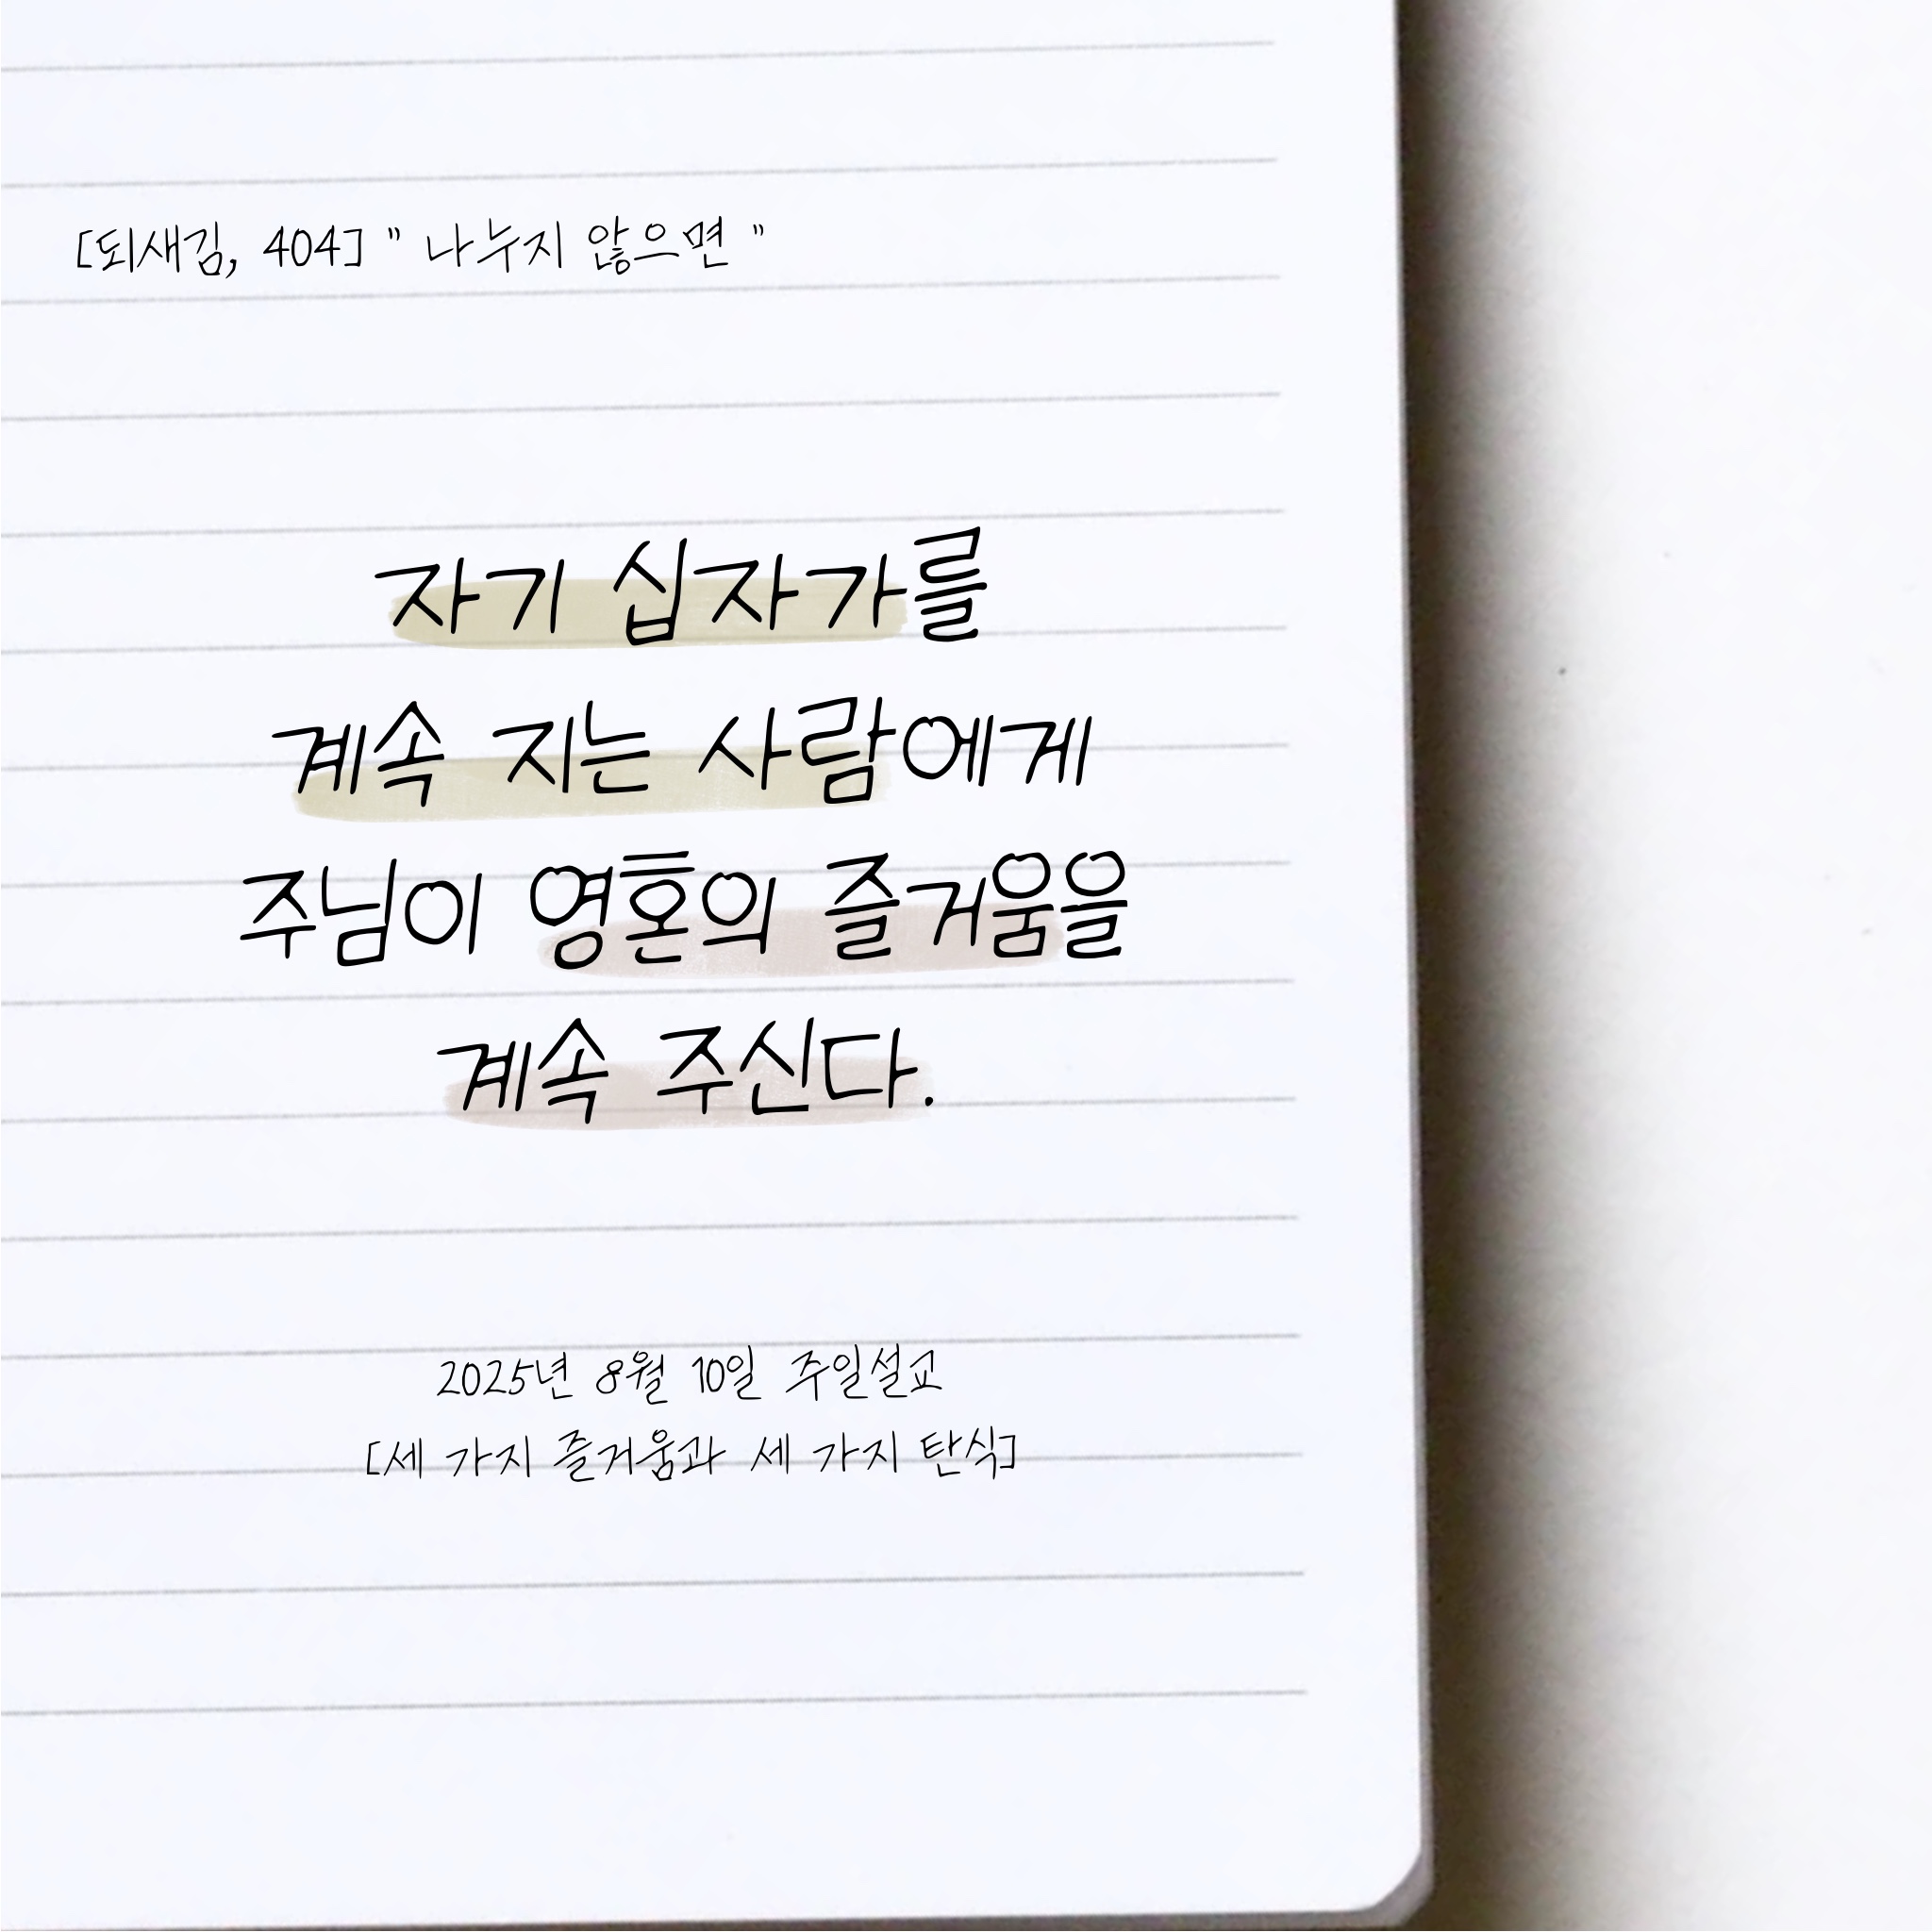 [되새김, 404] " 나누지 않으면 "
자기 십자가를
계속 지는 사람에게
주님이 영혼의 즐거움을
계속 주신다.
2025년 8월 10일 주일설교
[세 가지 즐거움과 세 가지 탄식]